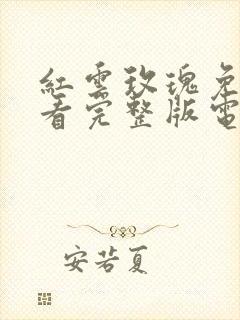 紅雲玫瑰免
看完整版電
安若夏